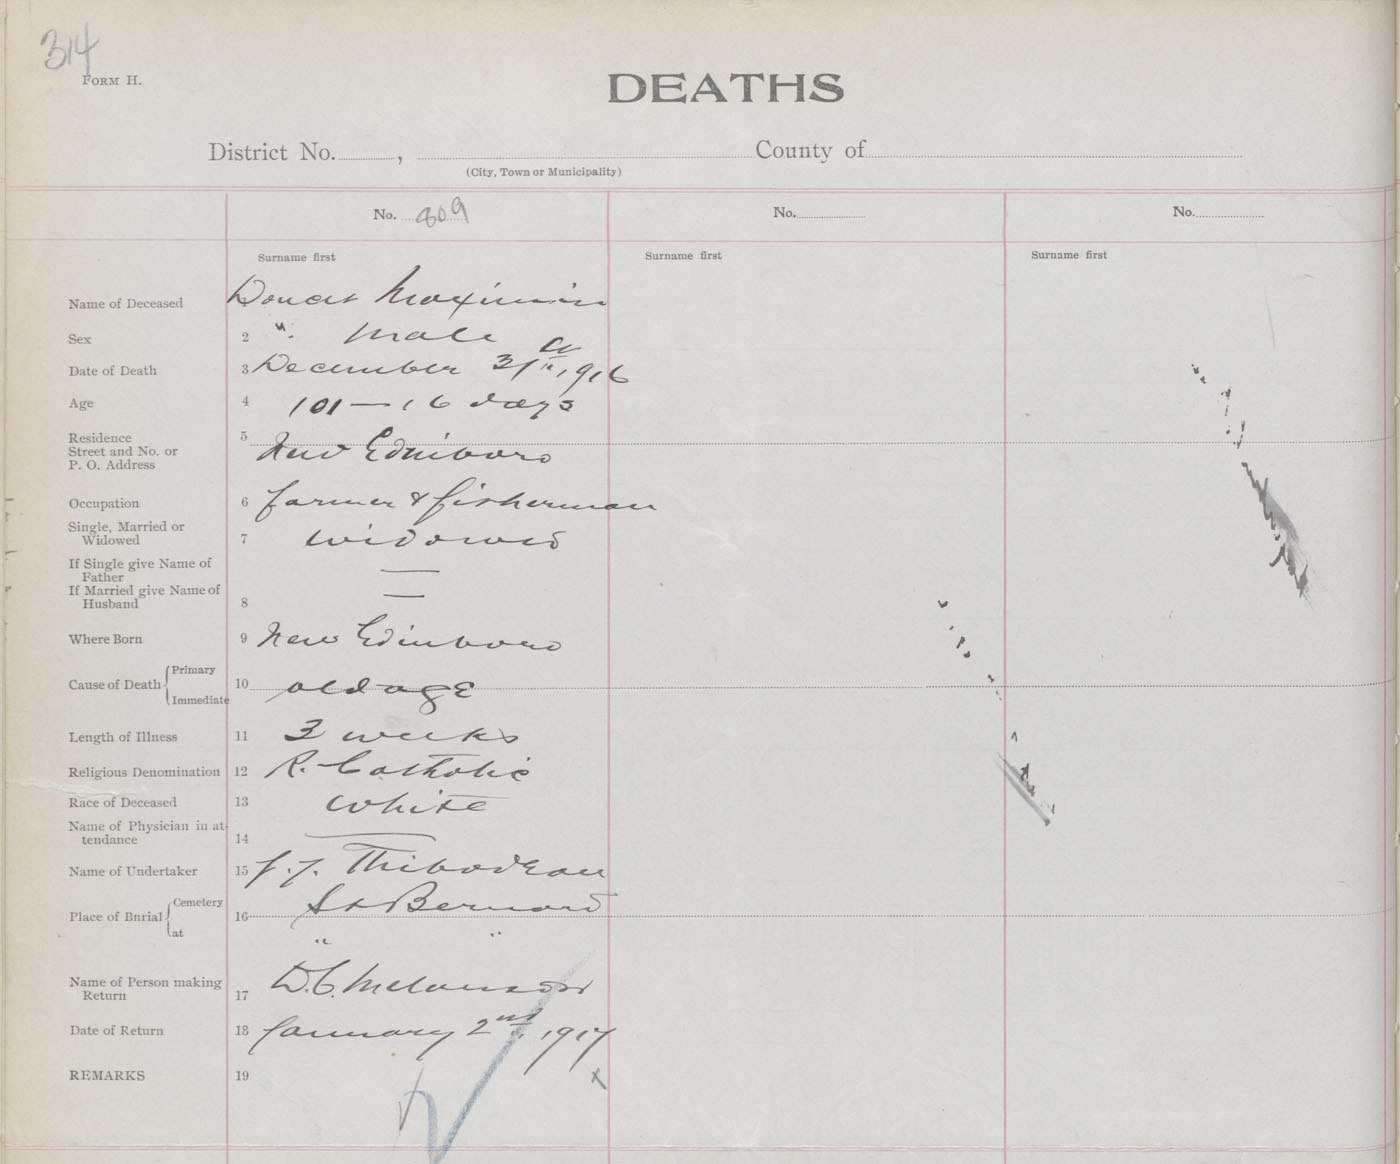 314
FORM H.
DEATHS
District No. , County of
(City, Town or Municipality)
No. 809 No. No.
Surname first Surname first Surname first
Name of Deceased Doucet Maximin
Sex 2 " Male
Date of Death 3 December 31 1916
Age 4 101 — 16 days
Residence 5
Street and No. or New Edinboro
P. O. Address
Occupation 6 farmer & fisherman
Single, Married or
Widowed 7 widowed
If Single give Name of —
Father
If Married give Name of —
Husband 8
Where Born 9 New Edinboro
Primary
Cause of Death 10 old age
Immediate
Length of Illness 11 3 weeks
Religious Denomination 12 R. Catholic
Race of Deceased 13 White
Name of Physician in at-
tendance 14 —
Name of Undertaker 15 Thibodeau
Cemetery
Place of Burial 16 St Bernard
at " "
Name of Person making
Return 17 D.C. Melanson
Date of Return 18 January 2nd, 1917
REMARKS 19